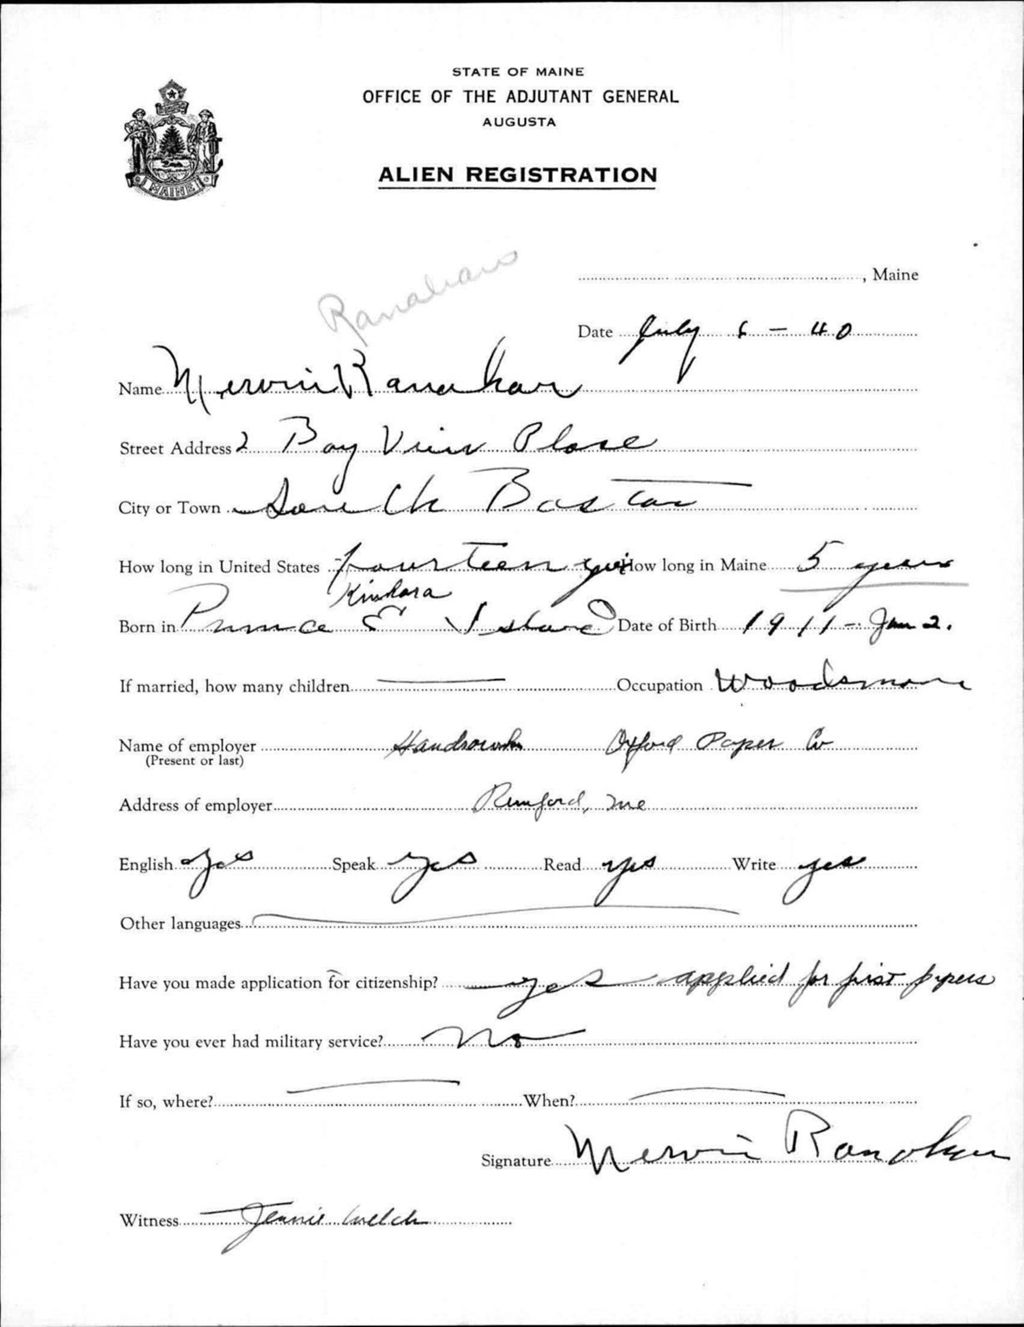 STATE OF MAINE
OFFICE OF THE ADJUTANT GENERAL
AUGUSTA
ALIEN REGISTRATION
MAINE
, Maine
Date July 6 - 40
Name Mervin Ranahan
Street Address 2 Bay View Place
City or Town South Boston
How long in United States fourteen yrs How long in Maine 5 years
Born in Prince E Island Date of Birth 1911 - Jan 2.
If married, how many children — Occupation Woodsman
Name of employer Oxford Paper Co
(Present or last)
Address of employer Rumford, Me
English Yes Speak Yes Read yes Write yes
Other languages —
Have you made application for citizenship? yes applied for first papers
Have you ever had military service? No
If so, where? — When? —
Signature Mervin Ranahan
Witness Jennie Welch